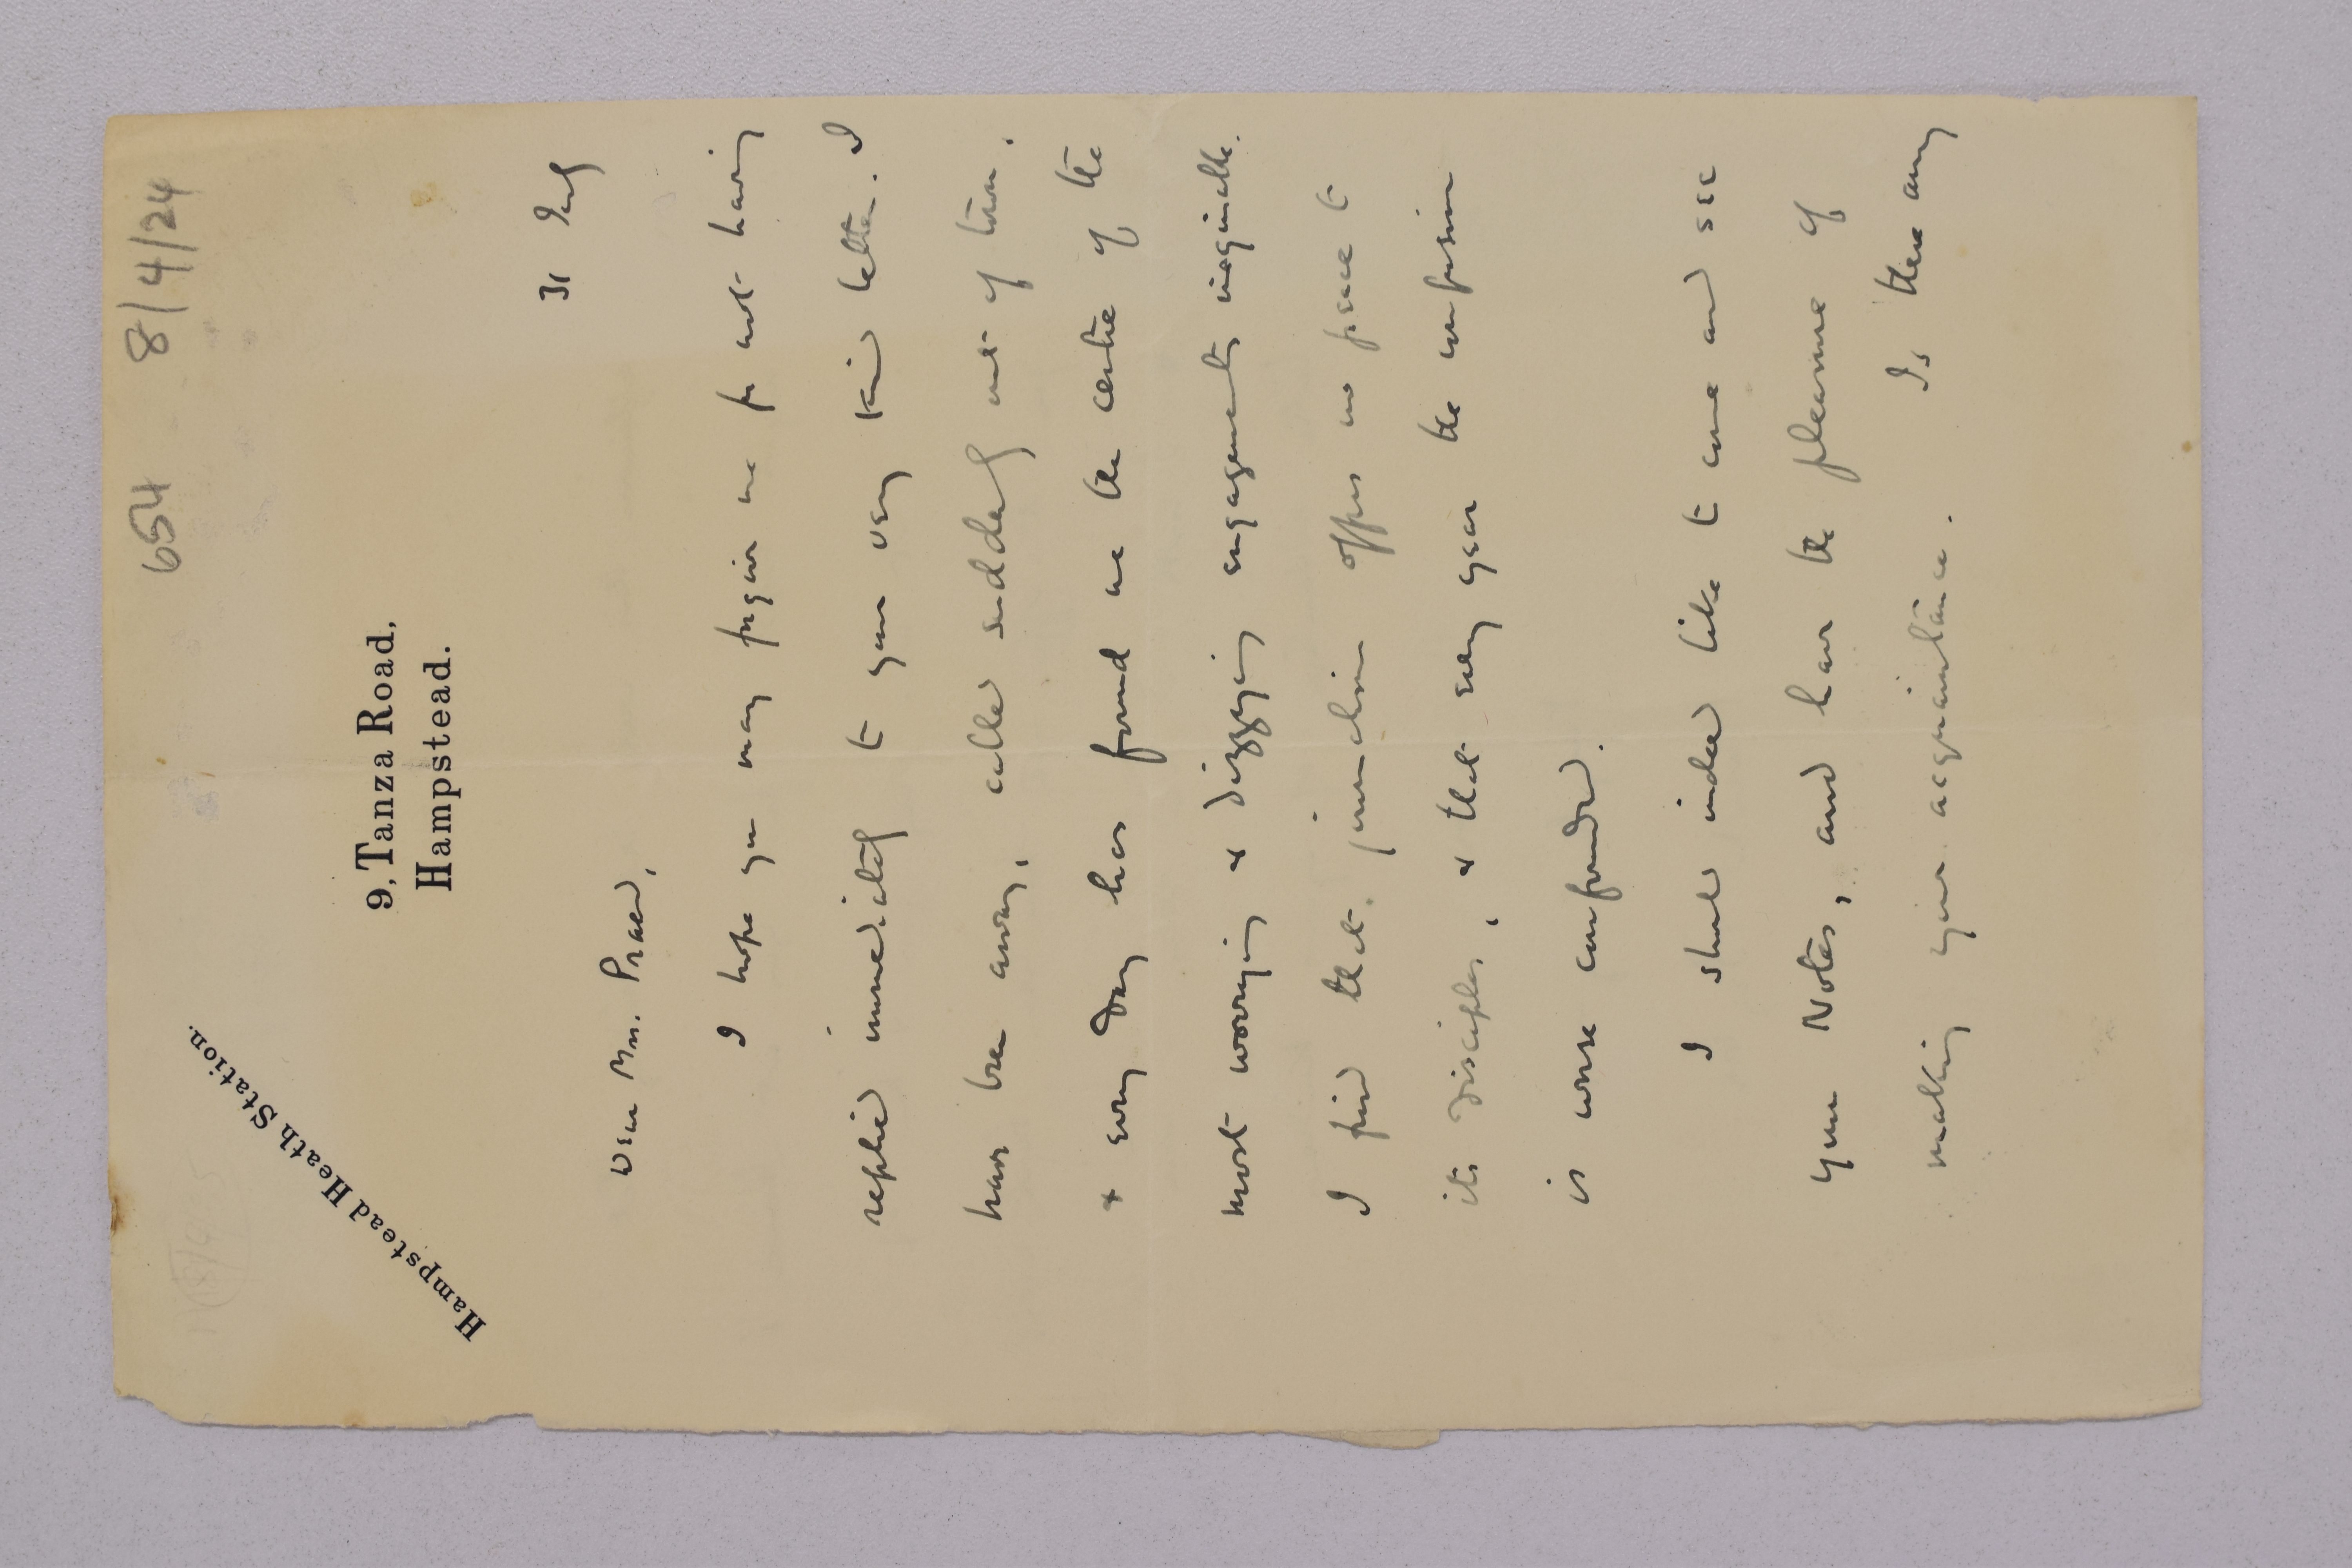 654 8/4/24
Hampstead Heath Station.
9, Tanza Road,
Hampstead.
31 July
Dear Mrs. Praed,
I hope you may forgive me for not having
replied immediately to your very kind letter. I
have been away, called suddenly out of town,
& every day has found me the centre of the
most worrying & dizzying engagements imaginable.
I find that journalism offers no peace to
its disciples, & that every year the confusion
is worse confounded.
I should indeed like to come and see
your Notes, and have the pleasure of
making your acquaintance. Is there any